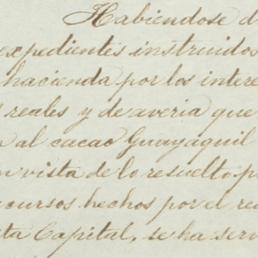 Habiendose d
expedientes instruidos
hacienda por los intere
s reales y de averia que
n al cacao Guayaquil
n vista de lo resuelto p
cursos hechos por el re
ta Capital, se ha serv